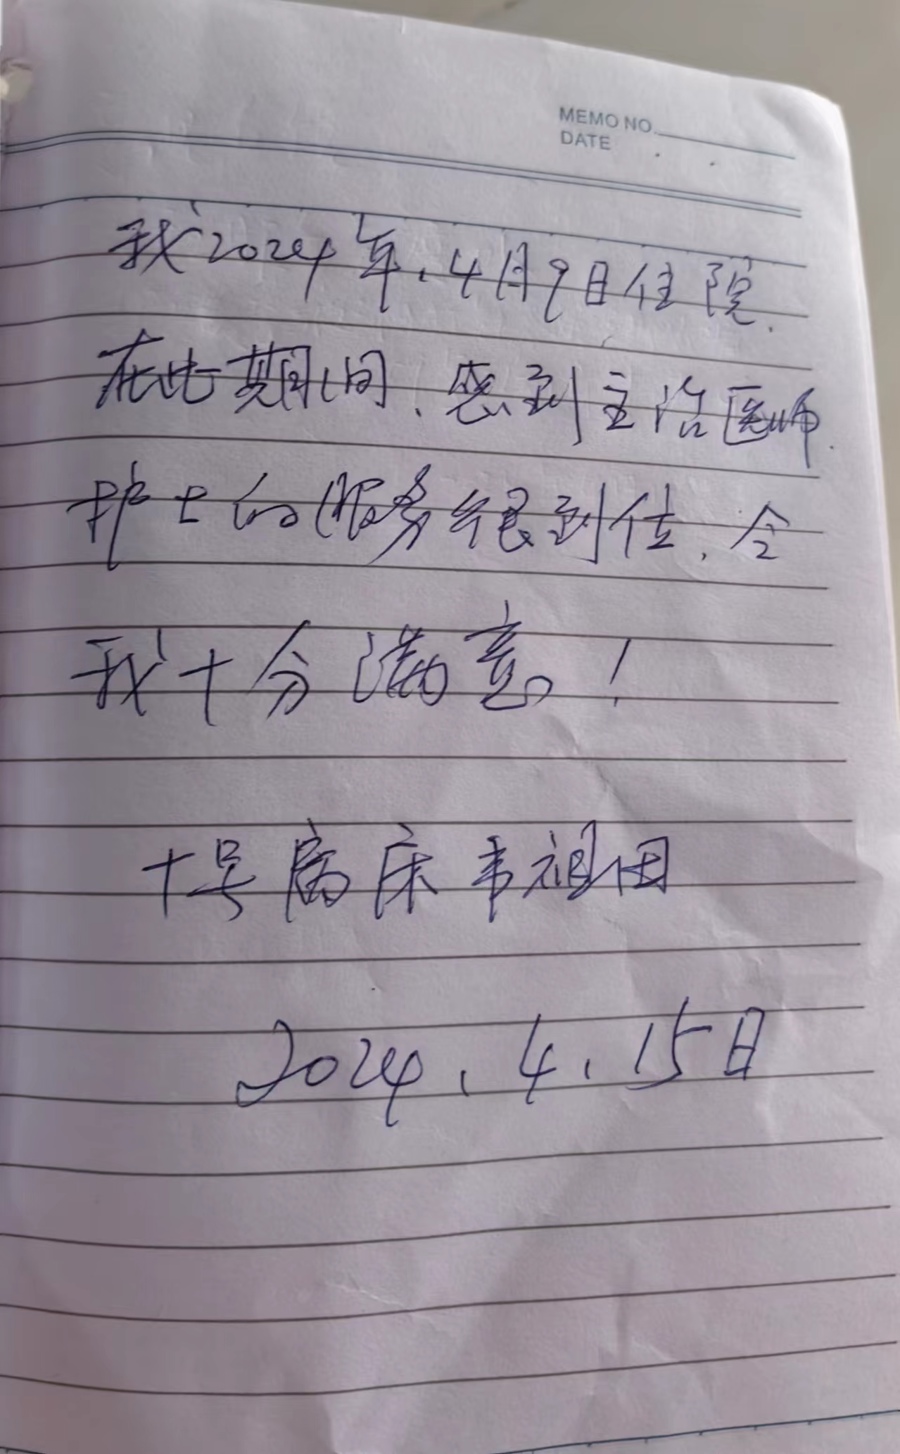 MEMO NO.
DATE
我2024年.4月9日住院.
在此期间、感到主治医师.
护士的服务很到位、令
我十分满意！
十号病床韦祖田
2024.4.15日